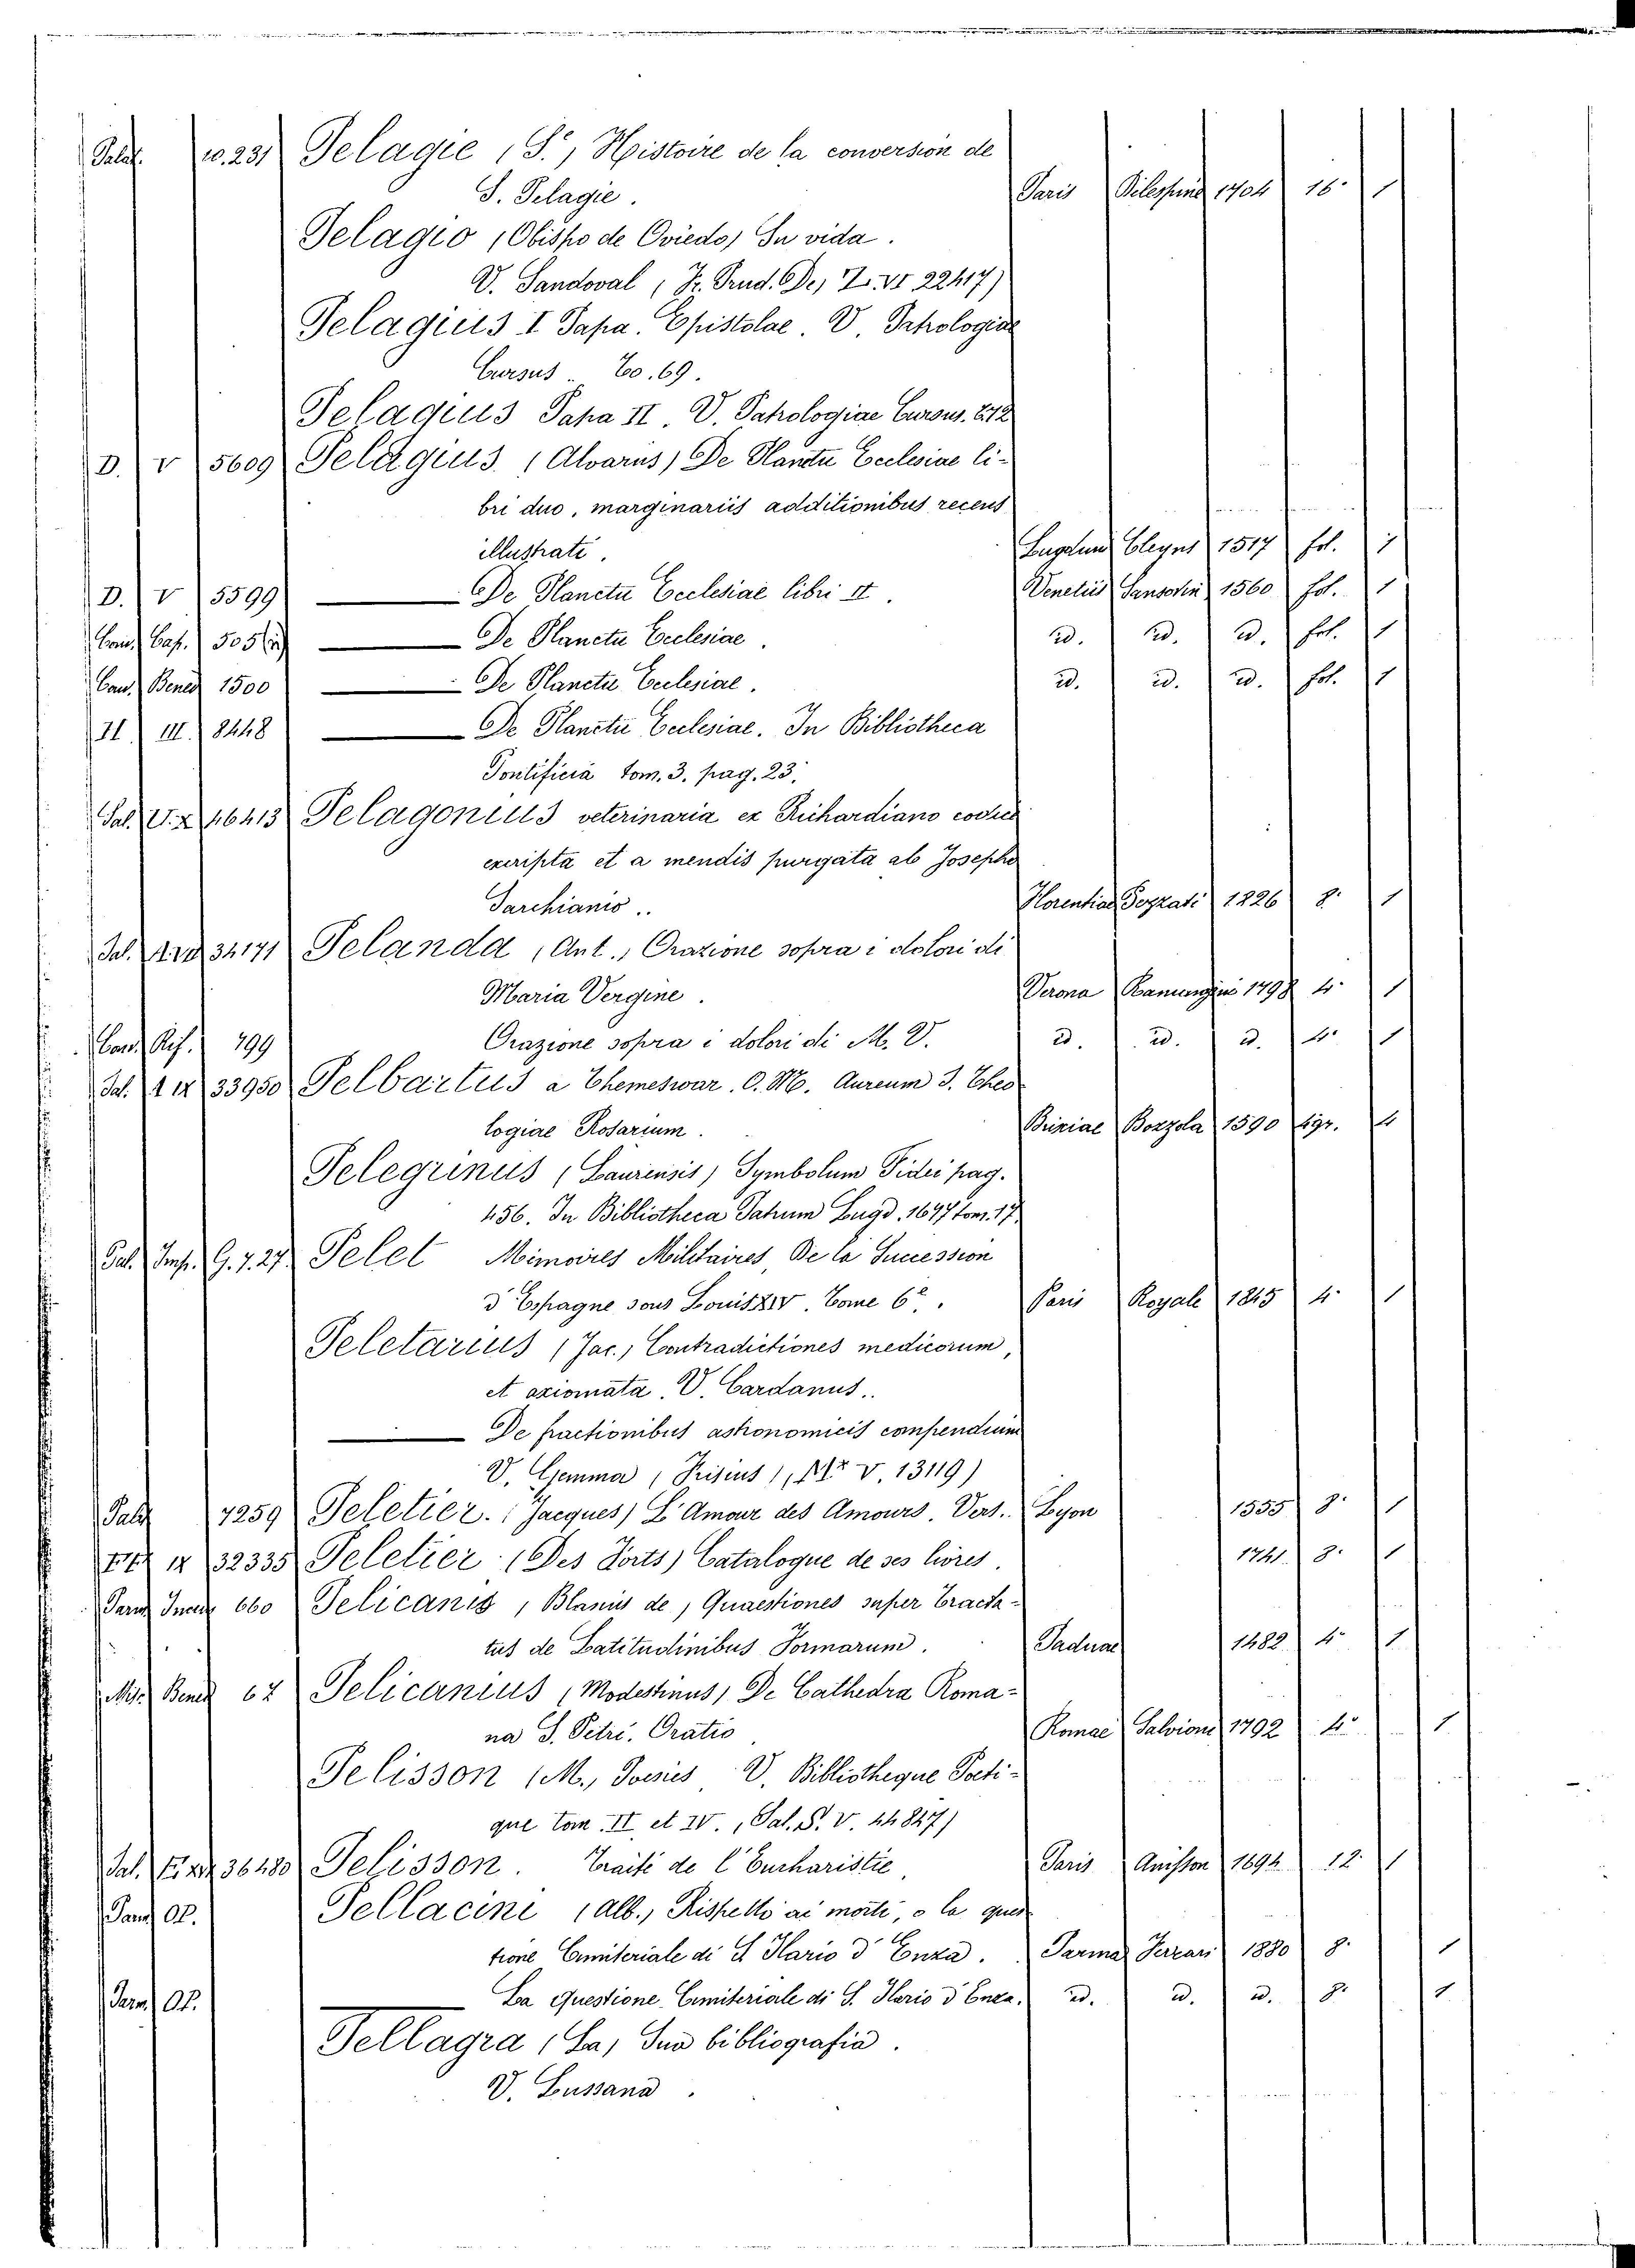 Palat. 10.231 Pelagie (S.) Histoire de la conversion de
S. Pelagie. Paris 1704 16° 1
Pelagio (Obispo de Oviedo) Su vida.
V. Sandoval (Fr. Prud. De) Z. VI 22417)
Pelagius I Papa. Epistolae. V. Patrologiae
Cursus. To. 69.
Pelagius Papa II. V. Patrologiae Cursus. t. 72
D. V 5609 Pelagius (Alvarus) De Planctu Ecclesiae li-
bri duo, marginariis additionibus recens
illustrati. Lugduni Cleyns 1517 fol. 1
D. V 5599 — De Planctu Ecclesiae libri II. Venetiis Sansovin 1560 fol. 1
Conv. Cap. 505 — De Planctu Ecclesiae. id. id. id. fol. 1
Conv. Bened 1500 — De Planctu Ecclesiae. id. id. id. fol. 1
II. III. 8448 — De Planctu Ecclesiae. In Bibliotheca
Pontificia tom. 3. pag. 23.
Sal. V. X 46413 Pelagonius veterinaria ex Richardiano codice
exscripta et a mendis purgata ab Josepho
Sarchianio.. Florentiae Pezzati 1826 8° 1
Sal. 34171 Pelanda (Ant.) Orazione sopra i dolori di
Maria Vergine. Verona Ramanzini 1798 4° 1
Conv. Rif. 799 Orazione sopra i dolori di M. V. id. id. id. 4° 1
Sal. 33950 Pelbartus a Themeswar. O. M. Aureum S. Theo
logiae Rosarium. Brixiae Bozzola 1590 4gr. 4
Pelegrinus (Laurensis) Symbolum Fidei pag.
456. In Bibliotheca Patrum Lugd. 1677 tom. 17
Pal. Imp. G. 7. 27. Pelet Mémoires Militaires, De la Succession
d'Espagne sous Louis XIV. Tome 6e. Paris Royale 1845 4° 1
Peletarius (Jac.) Contradictiones medicorum,
et axiomata. V. Cardanus..
— De fractionibus astronomicis compendium
V. Gemma (Frisius), V. 13119)
Palat 7259 Peletier. (Jacques) L'Amour des Amours. Vers.. Lyon 1555 8° 1
IX 32335 Peletier (Des Forts) Catalogue de ses livres. 1741. 8° 1
Parm Incun 660 Pelicanis (Blanis de) Quaestiones super Tracta-
tus de Latitudinibus Formarum. Paduae 1482 4° 1
Misc. Bened 67 Pelicanius (Modestinus) De Cathedra Roma-
na S. Petri. Oratio Romae Salvioni 1792 4° 1
Pelisson (M.) Poesies V. Bibliotheque Poeti-
que tom. II et IV. (Sal. S. V. 44827)
Sal. 36480 Pelisson. Traité de l'Eucharistie Paris Anisson 1694 12° 1
Parm OP. Pellacini (Alb.) Rispetto ai morti, o la ques
tione Cimiteriale di S. Ilario d'Enza. Parma Ferrari 1880 8° 1
Parm OP. La Questione Cimiteriale di S. Ilario d'Enza. id. id. id. 8° 1
Pellagra (La) Sua bibliografia.
V. Lussana.